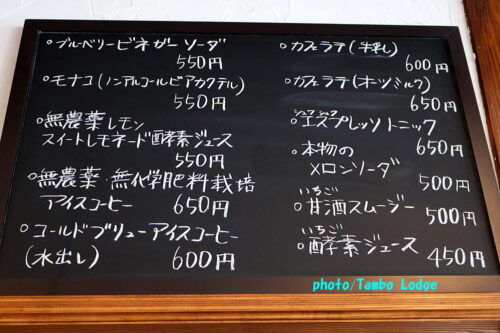 ○ブルーベリービネガーソーダ
550円
○モナコ(ノンアルコールビアカクテル)
550円
○無農薬レモン
スイートレモネード酵素ジュース
550円
○無農薬・無化学肥料栽培
アイスコーヒー 650円
○コールドブリューアイスコーヒー
(水出し) 600円
○カフェラテ(牛乳)
600円
○カフェラテ(オーツミルク)
650円
シュワシュワ
○エスプレッソトニック
650円
○本物の
メロンソーダ
500円
いちご
○甘酒スムージー 500円
いちご
○酵素ジュース 450円
photo/Tambo Lodge